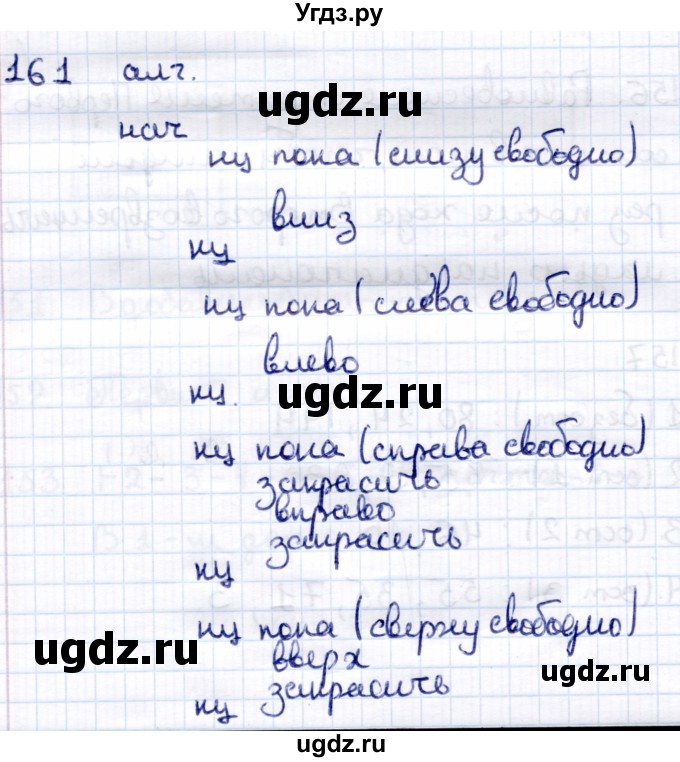 Угдз.ру
161 алг.
ugdz.ru
нач
нц пока (снизу свободно)
вниз
нц
нц пока (слева свободно)
влево
ugdz.ru
нц.
нц пока (справа свободно)
закрасить
вправо
закрасить
нц
нц пока (сверху свободно)
ugdz.ru
вверх
ugdz.ru
закрасить
нц
ugdz.ru